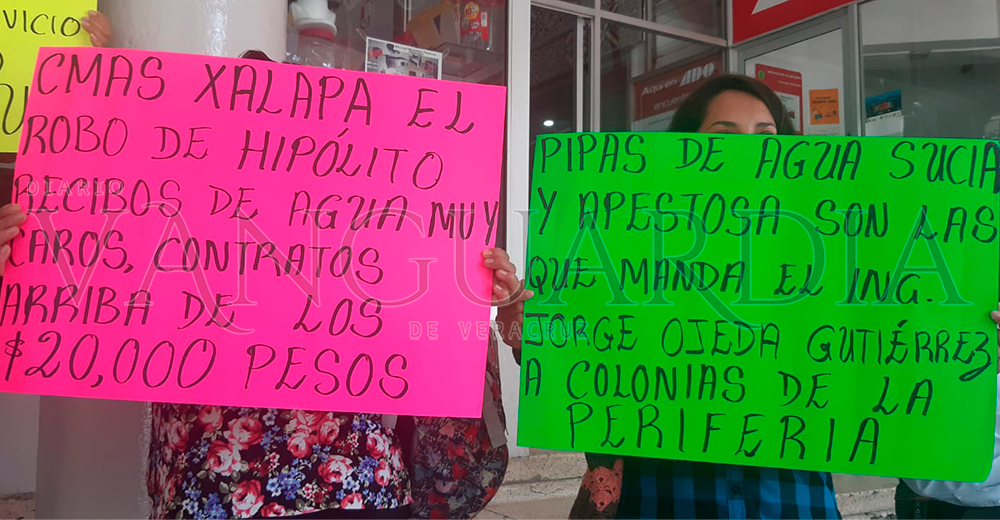 VICIO
CMAS XALAPA EL
ROBO DE HIPÓLITO
RECIBOS DE AGUA MUY
CAROS, CONTRATOS
ARRIBA DE LOS
$20,000 PESOS
Aquí en ADO
encuentra
PIPAS DE AGUA SUCIA
Y APESTOSA SON LAS
QUE MANDA EL ING.
JORGE OJEDA GUTIÉRREZ
A COLONIAS DE LA
PERIFERIA
DIARIO
VANGUARDIA
DE VERACRUZ